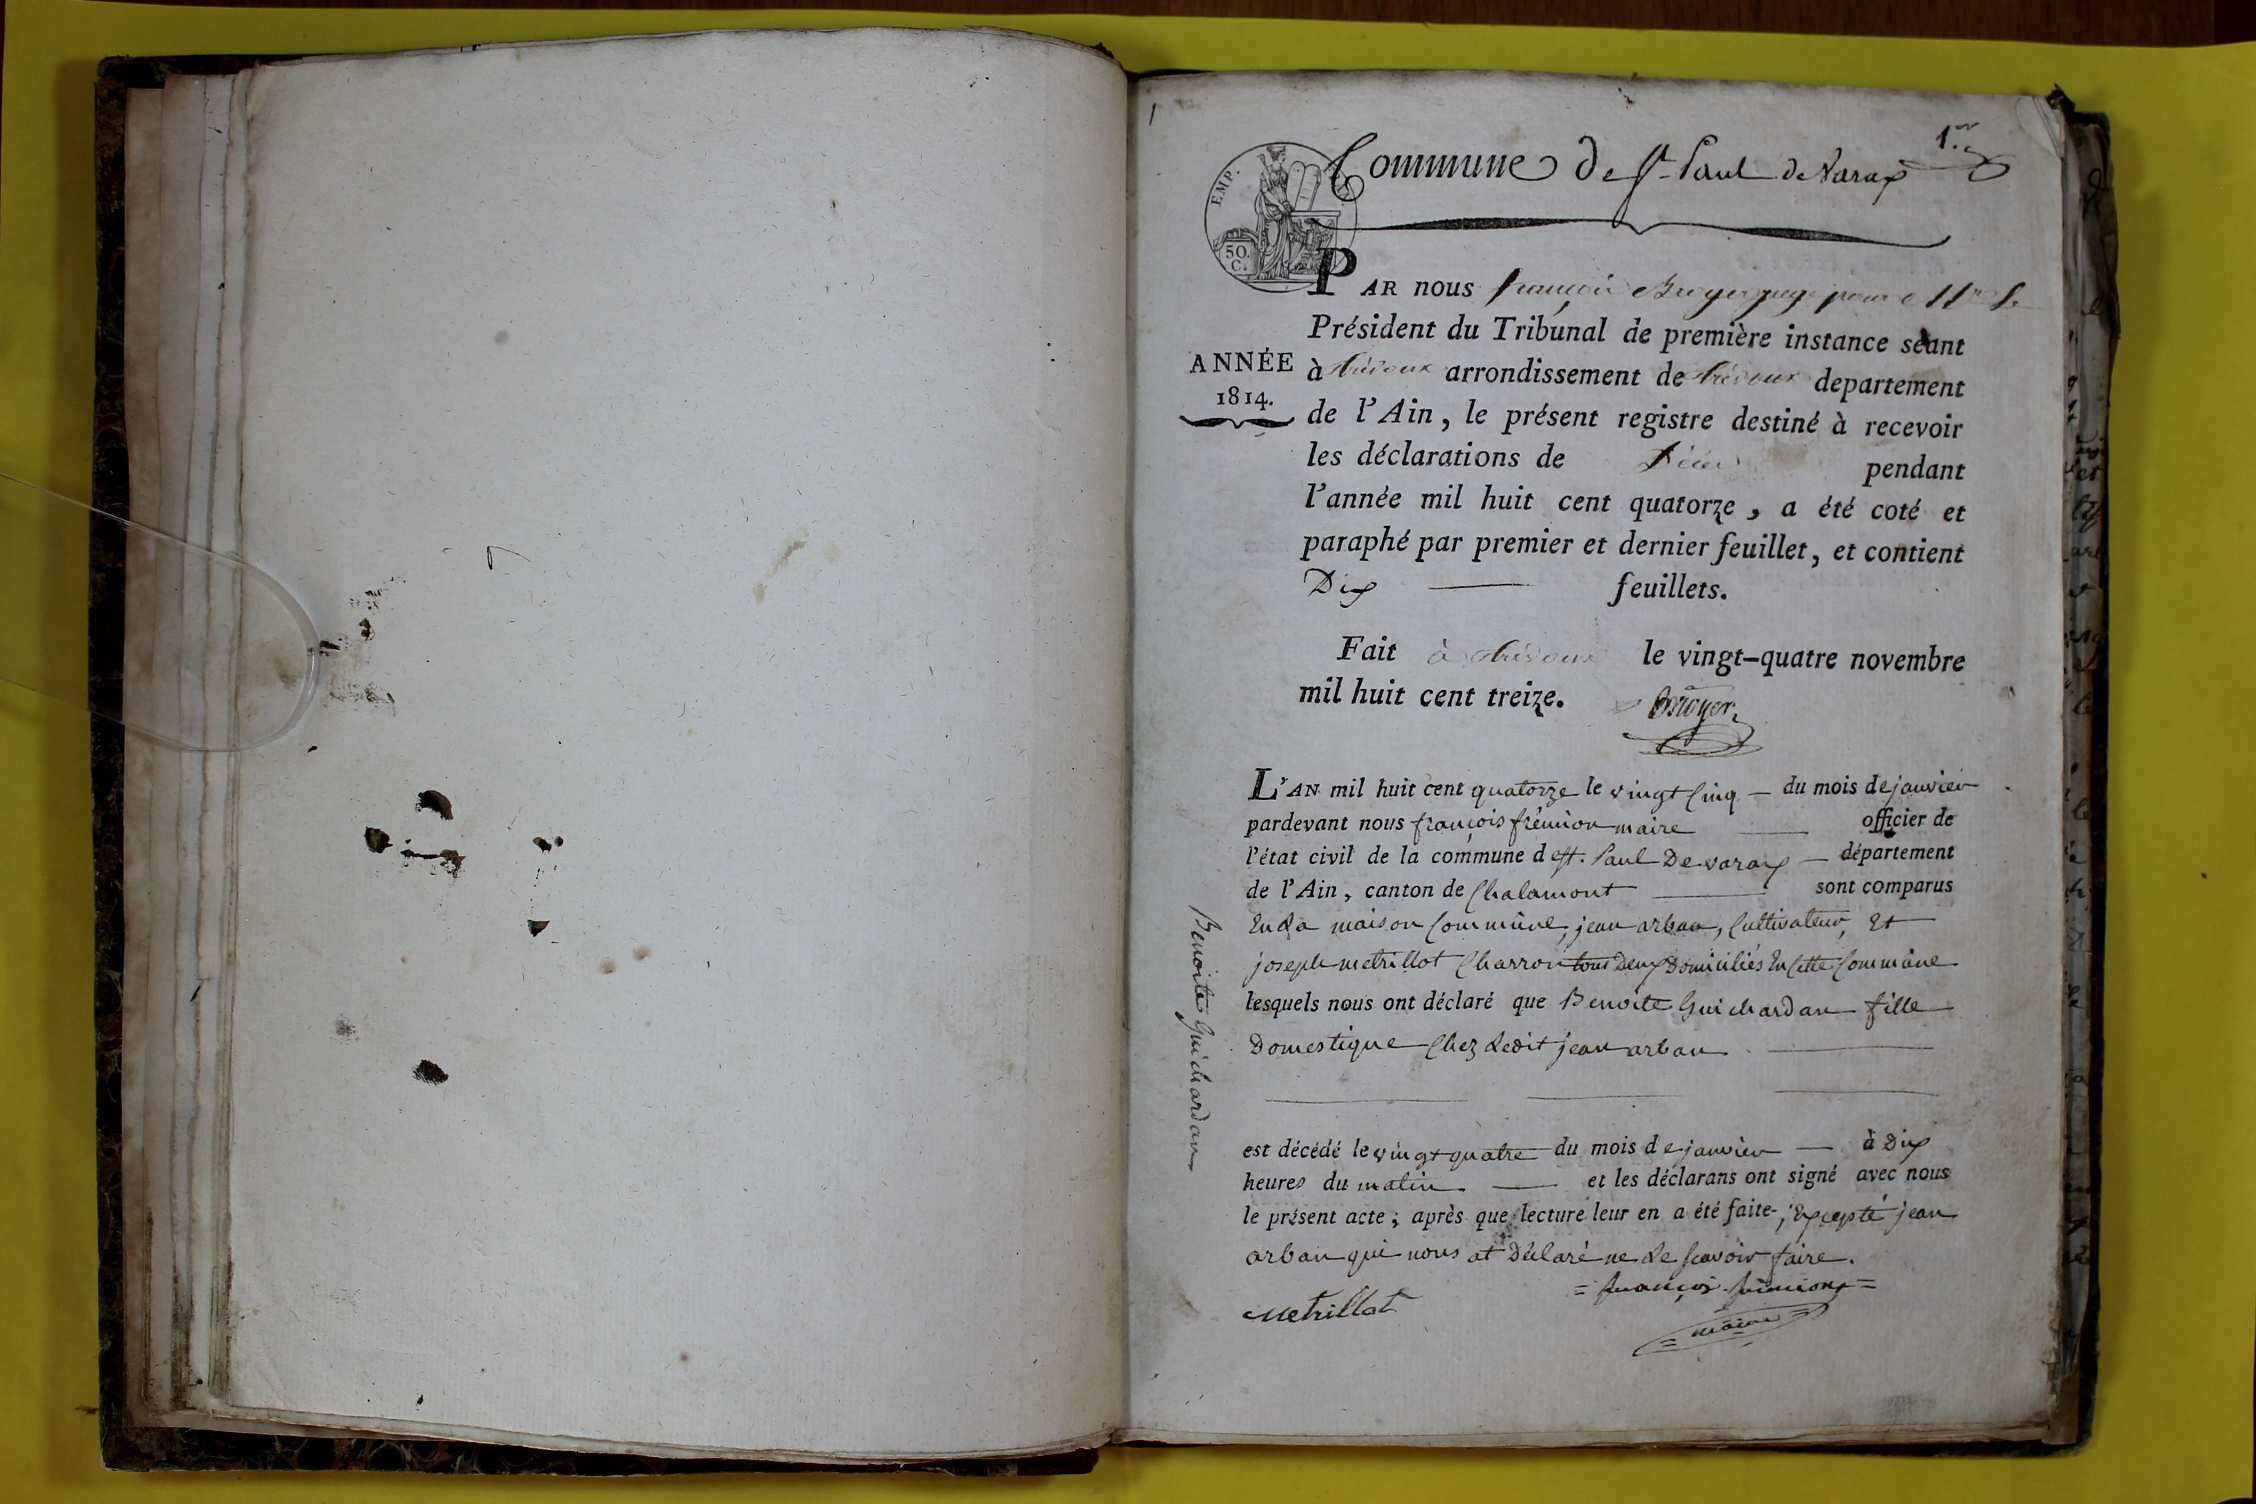 1
1.er
Commune de St Paul de Varax
EMP.
50.
C.
PAR nous françois Broyer juge pour Mr le
Président du Tribunal de première instance séant
ANNÉE
1814.
à trévoux arrondissement de trévoux departement
de l'Ain, le présent registre destiné à recevoir
les déclarations de Décès pendant
l'année mil huit cent quatorze, a été coté et
paraphé par premier et dernier feuillet, et contient
Dix — feuillets.
Fait à trévoux le vingt-quatre novembre
mil huit cent treize.
Broyer
L'AN mil huit cent quatorze le vingt Cinq — du mois de janvier
pardevant nous françois frémion maire — officier de
l'état civil de la commune de St. Paul De varax — département
de l'Ain, canton de Chalamont — sont comparus
En la maison Commune, jean arban, Cultivateur, Et
joseph metrillot Charron tous Deux Domiciliés En Cette Commune
lesquels nous ont déclaré que Benoite Guichardan fille
Domestique Chez Ledit jean arban
Benoite Guichardan
est décédé le vingt quatre du mois de janvier — à Dix
heures du matin — et les déclarans ont signé avec nous
le présent acte; après que lecture leur en a été faite, Excepté jean
arban qui nous at Déclaré ne Le scavoir faire.
= françois frémion =
metrillot
= maire =